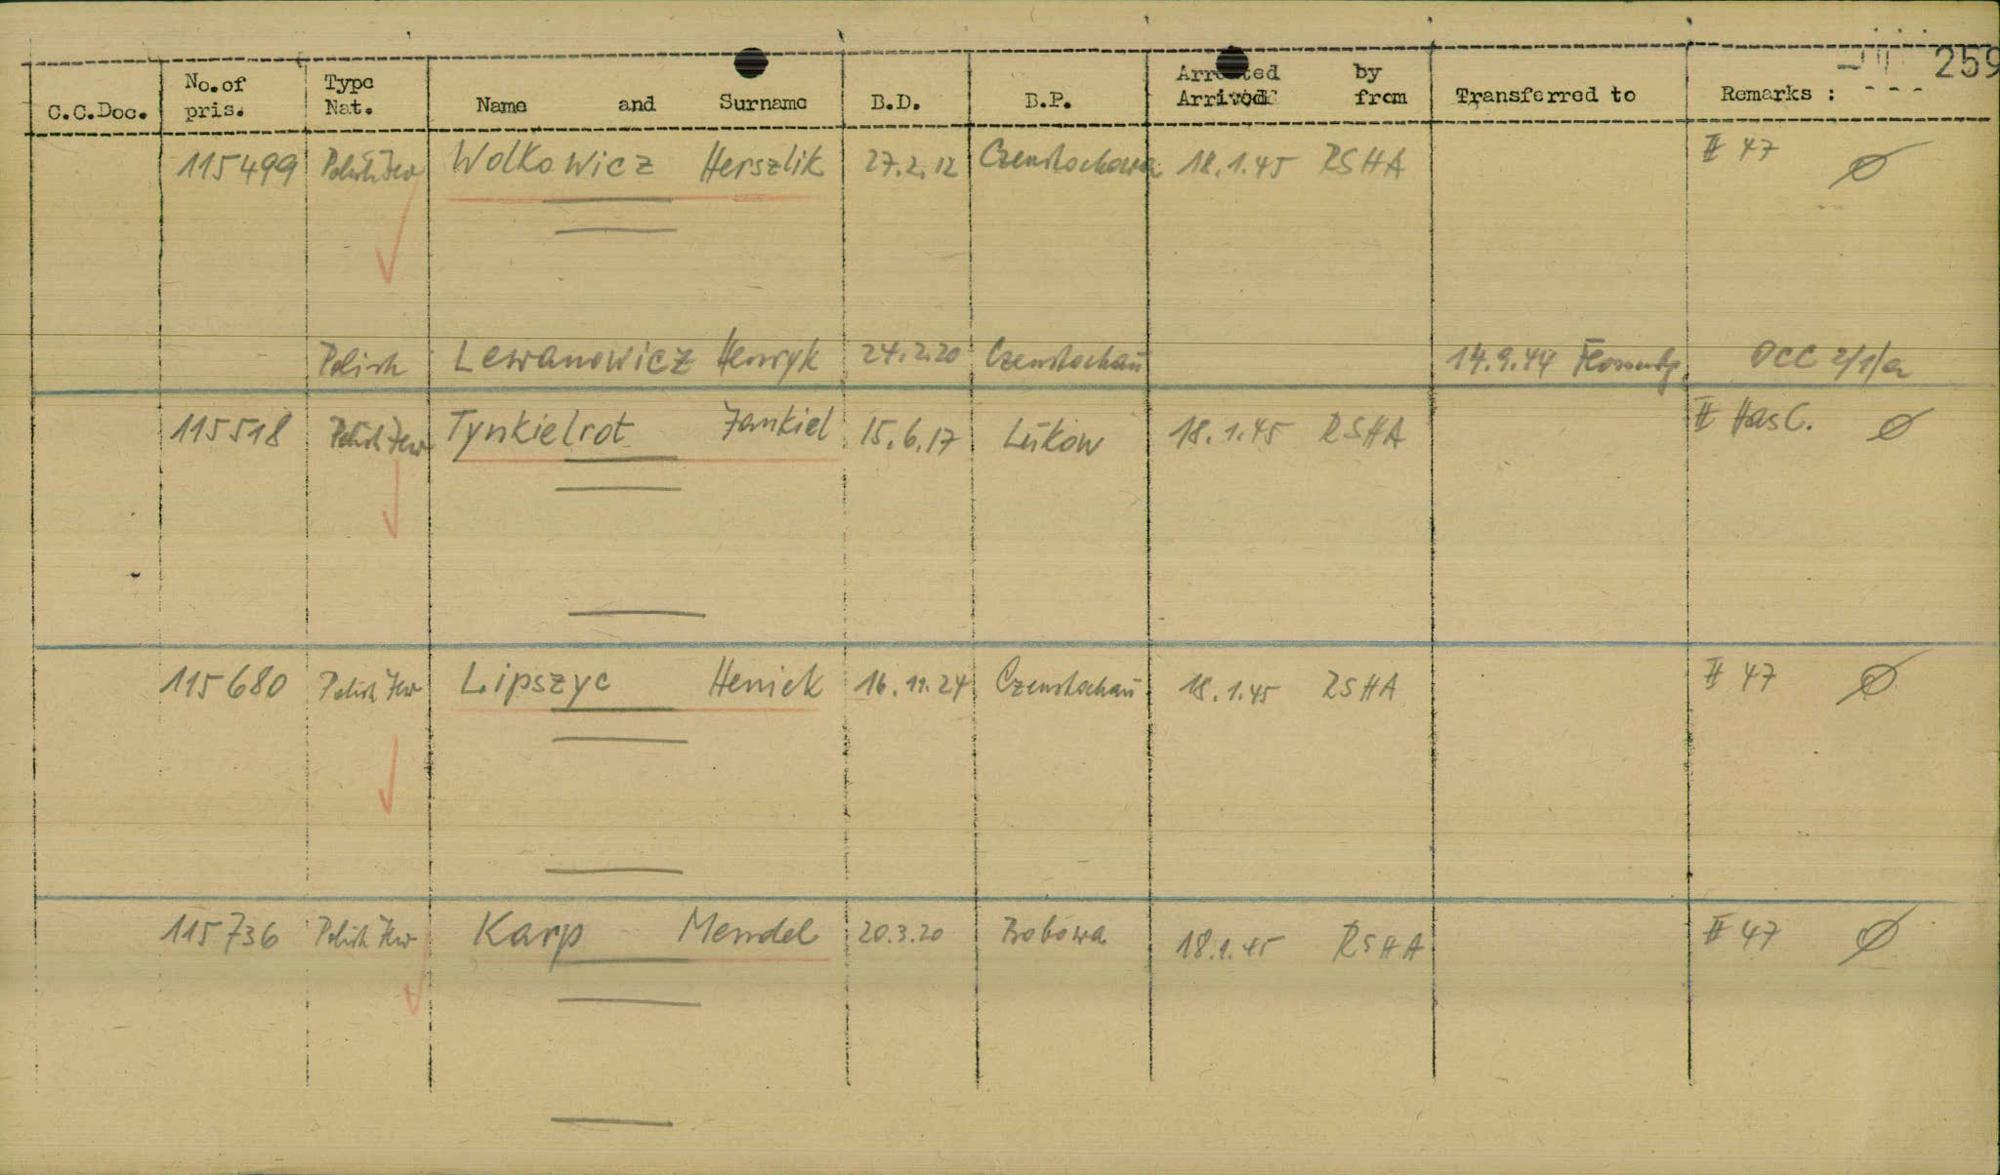 259
C.C.Doc. No.of pris. Type Nat. Name and Surname B.D. B.P. Arrested by Arrived from Transferred to Remarks :
115499 Polish Jew Wolkowicz Herszlik 27.2.12 Czenstochowa 18.1.45 RSHA II 47
Polish Lewanowicz Henryk 24.2.20 Czenstochau 14.9.44 OCC 2/1/a
115518 Polish Jew Tynkielrot Jankiel 15.6.17 Lukow 18.1.45 RSHA II
115680 Polish Jew Lipszyc Heniek 16.11.24 Czenstochau 18.1.45 RSHA II 47
115736 Polish Jew Karp Mendel 20.3.20 Bobowa 18.1.45 RSHA II 47